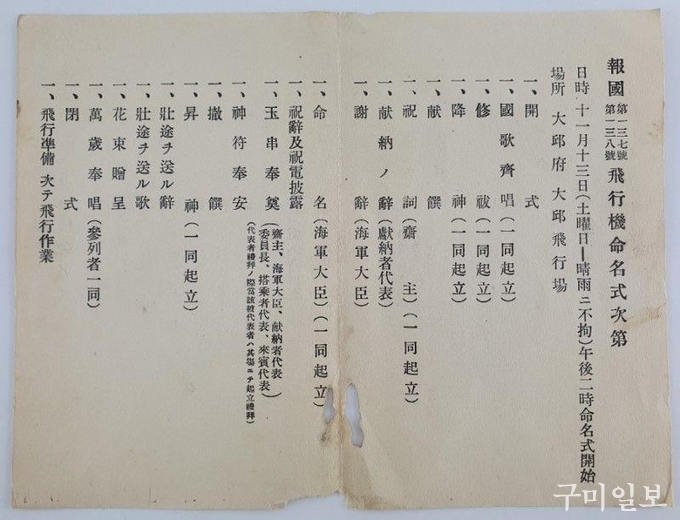 報國第一三七號第一三八號飛行機命名式次第
日時 十一月十三日(土曜日―晴雨ニ不拘)午後二時命名式開始
場所 大邱府 大邱飛行場
一、開式
一、國歌齊唱(一同起立)
一、修祓(一同起立)
一、降神(一同起立)
一、献饌
一、祝詞(齋主)(一同起立)
一、献納ノ辭(献納者代表)
一、謝辭(海軍大臣)
一、命名(海軍大臣)(一同起立)
一、祝辭及祝電披露
一、玉串奉奠(齋主、海軍大臣、献納者代表
委員長、搭乘者代表、來賓代表)
(代表者禮拜ノ際當該被代表者ハ其場ニテ起立禮拜)
一、神符奉安
一、撤饌
一、昇神(一同起立)
一、壯途ヲ送ル辭
一、壯途ヲ送ル歌
一、花束贈呈
一、萬歲奉唱(參列者一同)
一、閉式
一、飛行準備 次テ飛行作業
구미일보